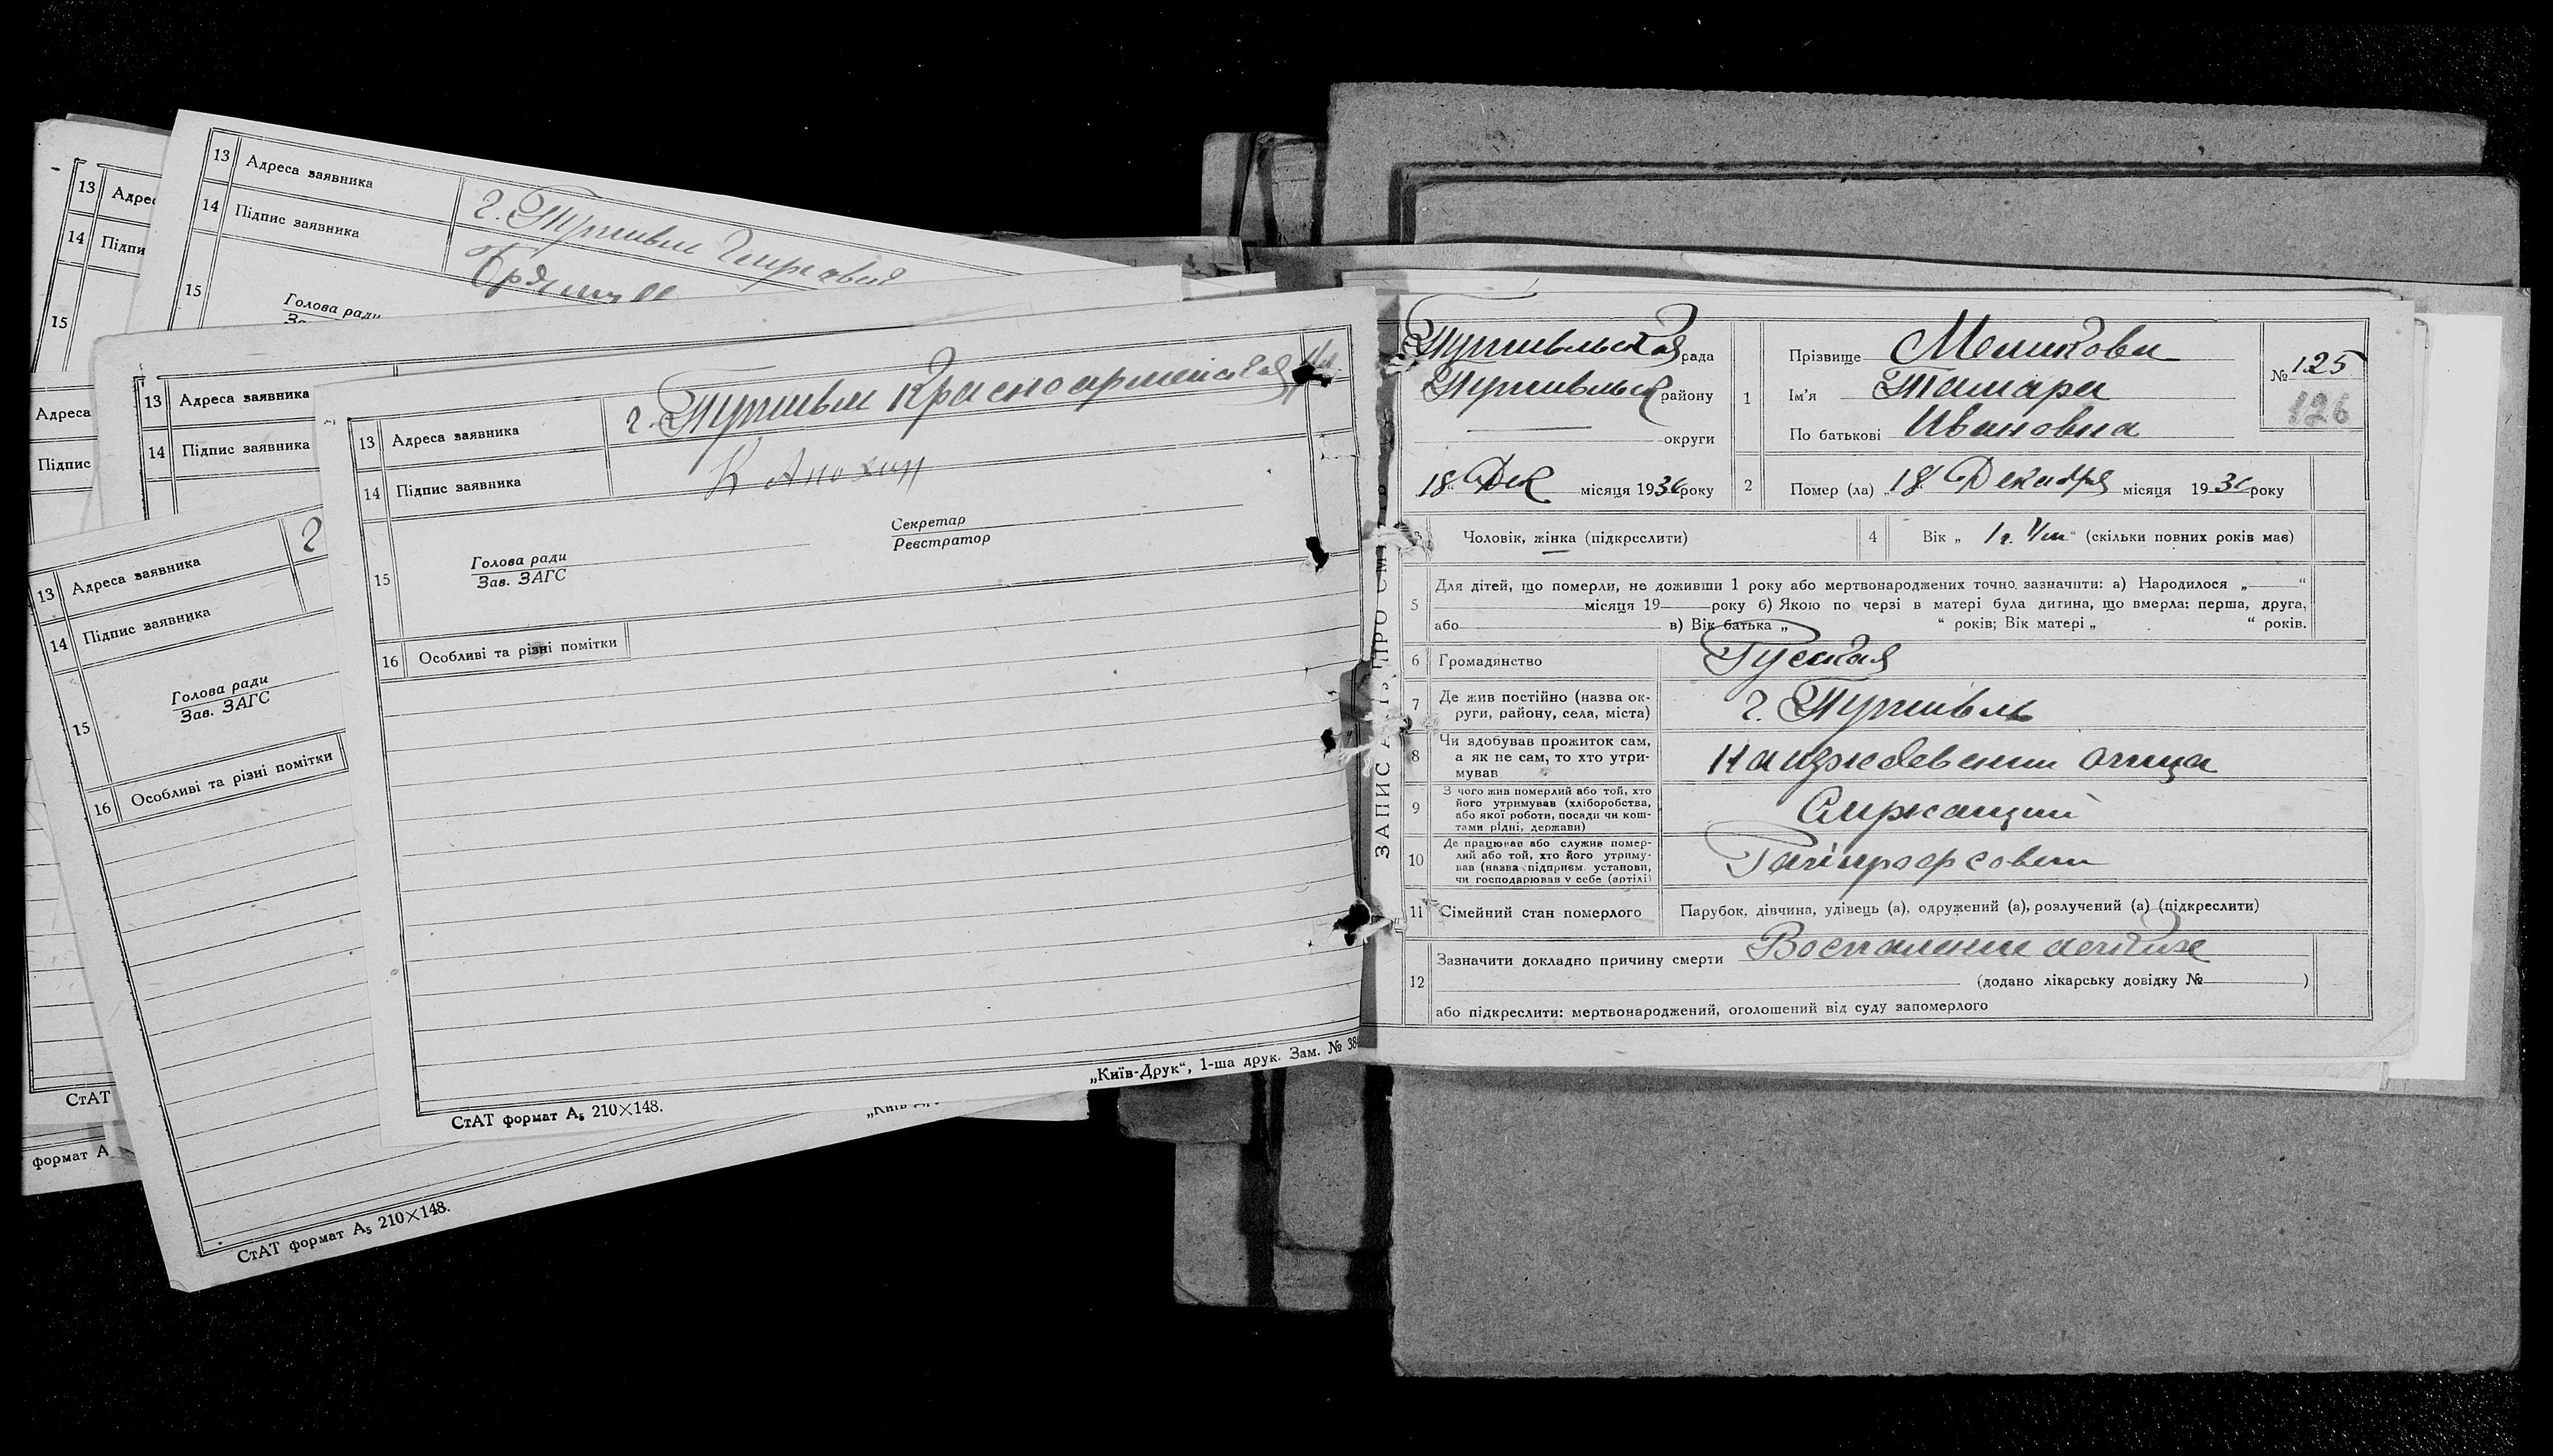 13 Адреса заявника г. Путивль
14 Підпис заявника
15
Голова ради
13 Адрес
14 Підпи
15
Адреса
Підпис
13 Адреса заявника
14 Підпис заявника
13 Адреса заявника г
14 Підпис заявника
15
Голова ради
Зав. ЗАГС
16 Особливі та різні помітки
СтАТ
формат А
СтАТ формат А5 210×148.
13 Адреса заявника г. Путивль Красноармейская
14 Підпис заявника К Анохин
15
Голова ради
Зав. ЗАГС
Секретар
Реєстратор
16 Особливі та різні помітки
СтАТ формат А5 210×148.
„Київ-Друк“, 1-ша друк. Зам. № 38
ЗАПИС
ПРО СМ
Путивльская рада
Путивльск району
округи
18 Дек місяця 1936 року
1
Прізвище Мешкова
Ім'я Тамара
По батькові Ивановна
№ 125
126
2 Помер (ла) „18“ Декабря місяця 1936 року
3 Чоловік, жінка (підкреслити)
4 Вік „ 1 г. “ (скільки повних років мав)
5 Для дітей, що померли, не доживши 1 року або мертвонароджених точно зазначити: а) Народилося „ “
місяця 19 року б) Якою по черзі в матері була дитина, що вмерла: перша, друга,
або в) Вік батька „ “ років; Вік матері „ “ років.
6 Громадянство Руская
7 Де жив постійно (назва ок-
руги, району, села, міста) г. Путивль
8 Чи здобував прожиток сам,
а як не сам, то хто утри-
мував На иждевении отца
9 З чого жив померлий або той, хто
його утримував (хліборобства,
або якої роботи, посади чи кош-
тами рідні, держави) Служащий
10 Де працював або служив помер-
лий або той, хто його утриму-
вав (назва підприєм. установи,
чи господарював у себе (артілі) Райпрофсовет
11 Сімейний стан померлого Парубок, дівчина, удівець (а), одружений (а), розлучений (а) (підкреслити)
12 Зазначити докладно причину смерти Воспаление легких
(додано лікарську довідку № )
або підкреслити: мертвонароджений, оголошений від суду запомерлого